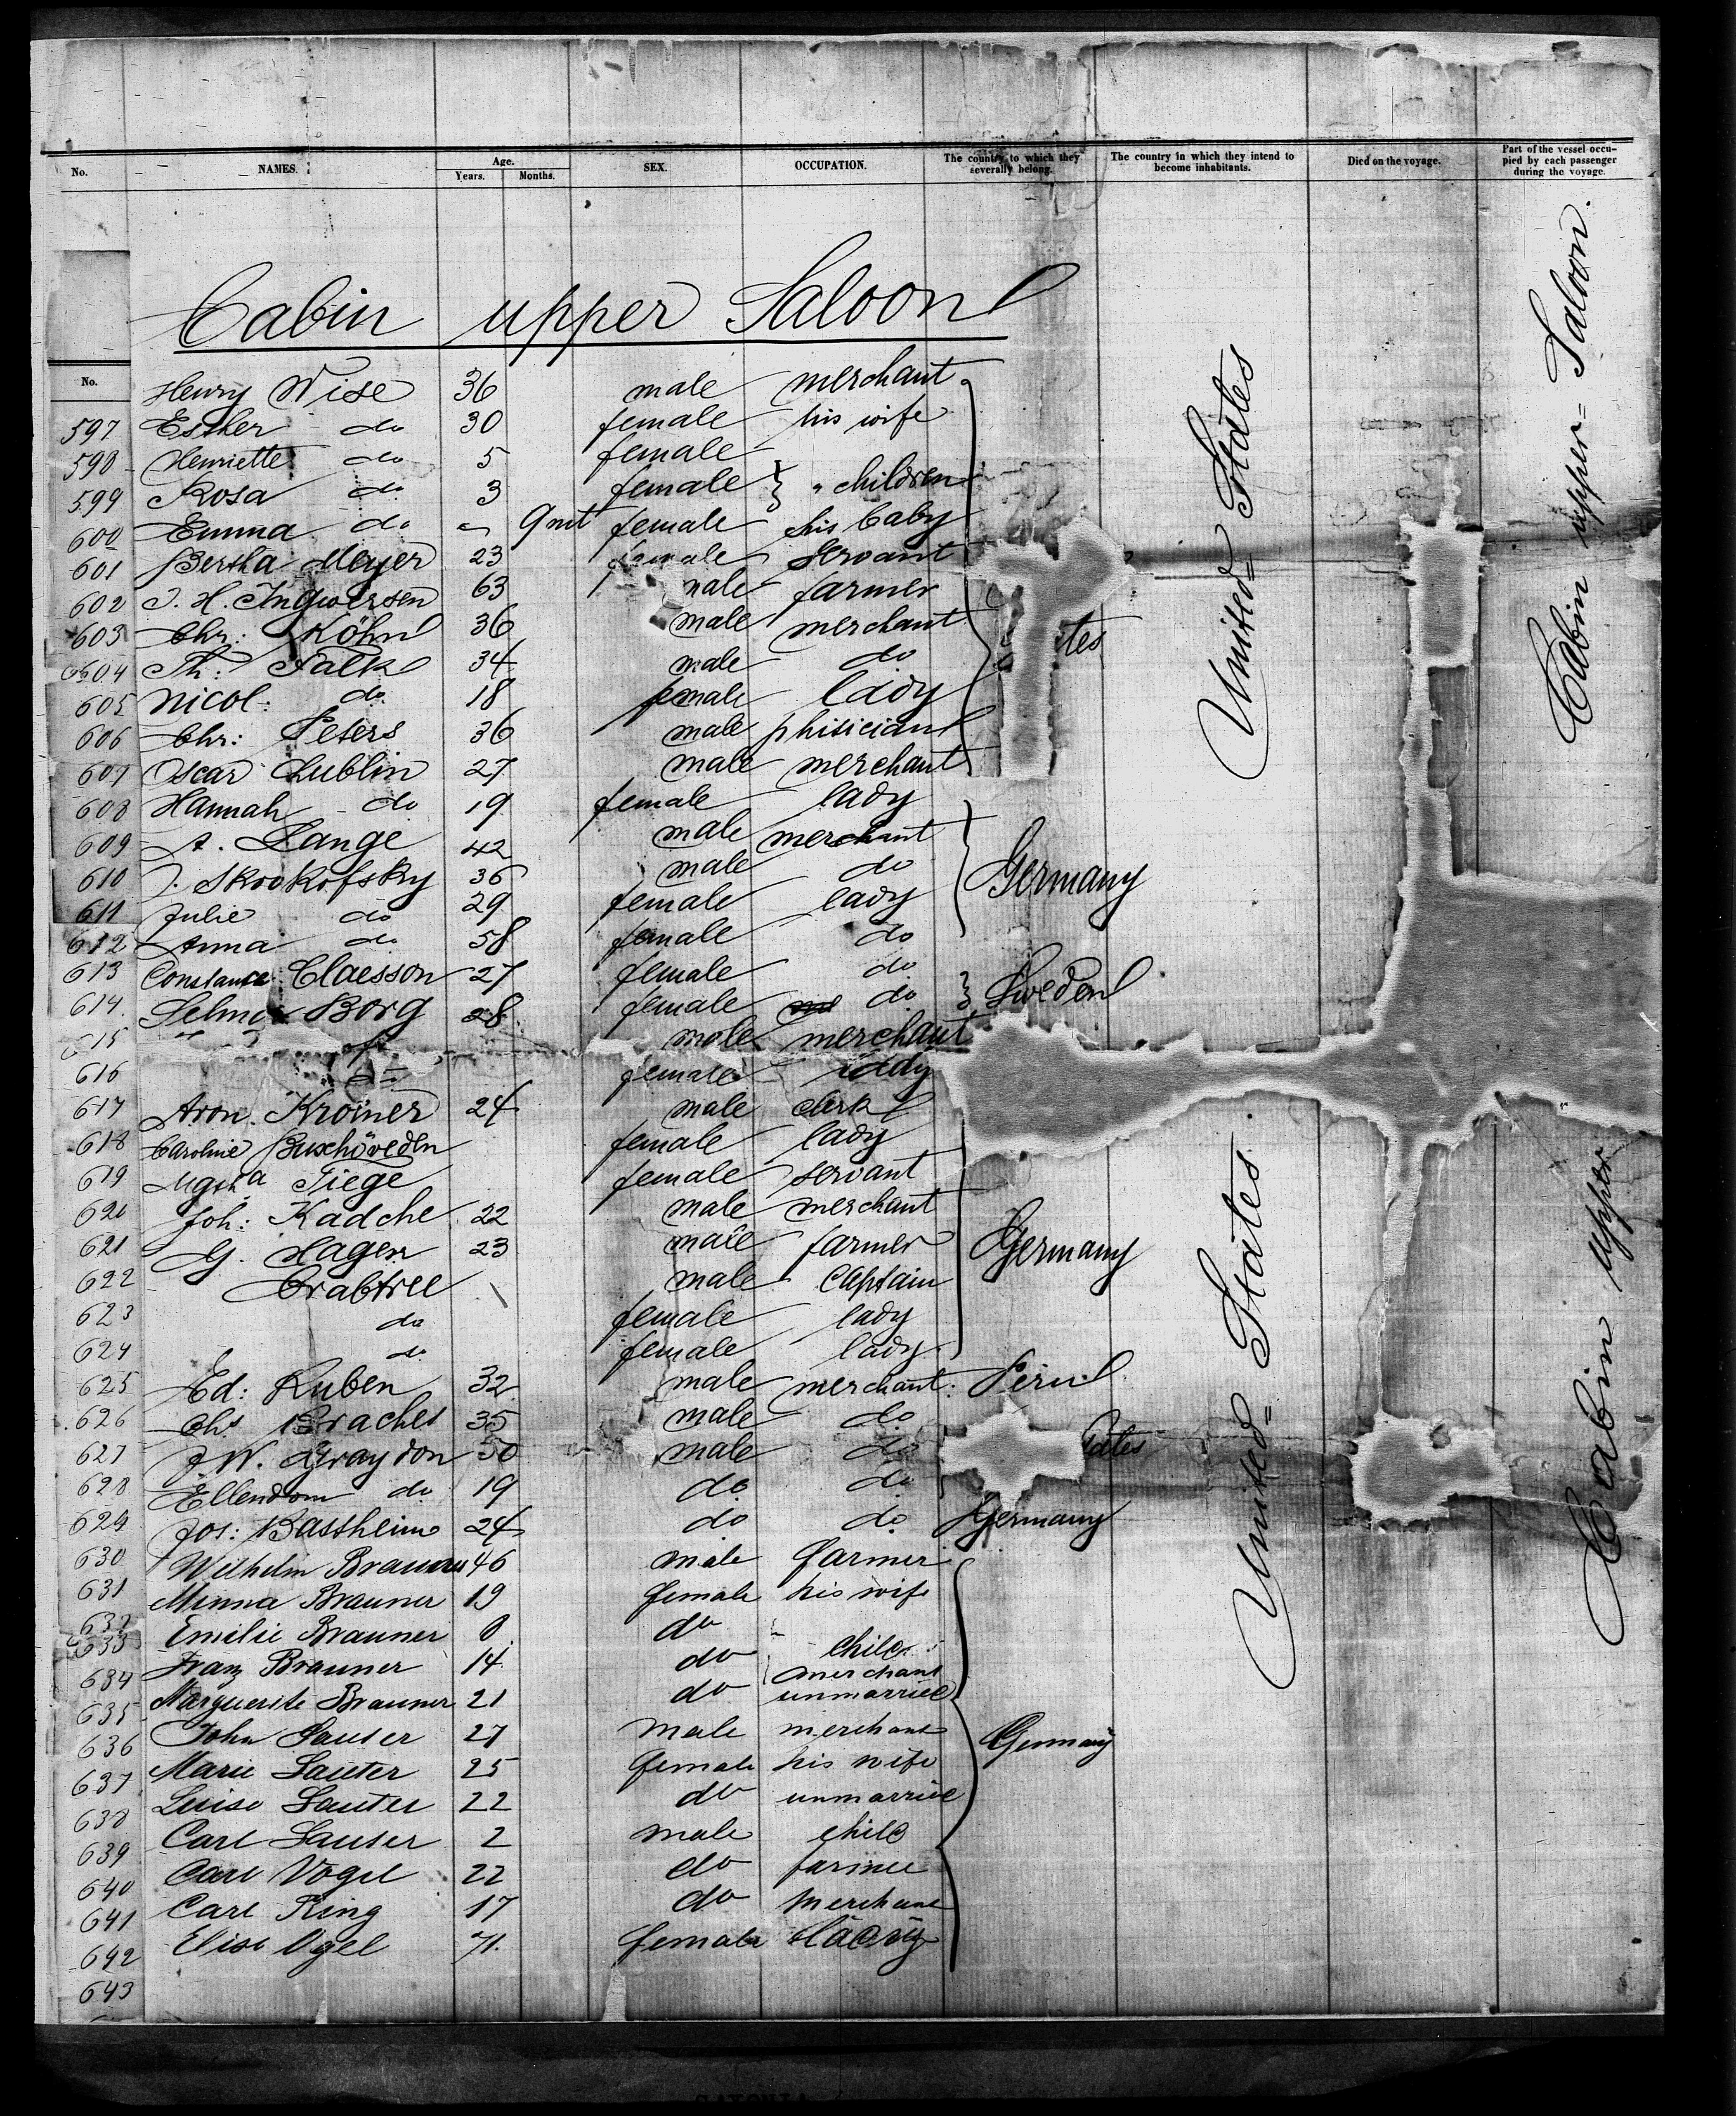 No. NAMES. Age. Years. Months. SEX. OCCUPATION. The country to which they severally belong. The country in which they intend to become inhabitants. Died on the voyage. Part of the vessel occupied by each passenger during the voyage.
Cabin upper Saloon
No. Henry Wise 36 male merchant
597 Esther do 30 female his wife
598 Henriette do 5 female
599 Rosa do 3 female children
600 Emma do 9 mt female his baby
601 Bertha Meyer 23 female servant
602 J. H. Ingwersen 63 male farmer
603 Chr: Köhn 36 male merchant
604 Th: Falk 34 male do tes
605 Nicol: do 18 female lady
606 Chr: Peters 36 male phisician
607 Oscar Lublin 27 male merchant
608 Hannah do 19 female lady
609 A. Lange 42 male merchant
610 J. Skrokofsky 36 male do Germany
611 Julie do 29 female lady
612 Anna do 58 female do
613 Constance Claesson 27 female do
614 Selma Borg 28 female do Sweden
615 male merchant
616 female lady
617 Aron Kroiner 24 male clerk
618 Caroline Buschövedln female lady
619 Tiege female servant
620 Joh: Kadche 22 male merchant
621 G. Hagen 23 male farmer Germany
622 Crabtree male Captain
623 do female lady
624 do female lady
625 Ed: Ruben 32 male merchant: Peru
626 Chs Brachet 35 male do
627 J W. Graydon 50 male do ates
628 Ellendom do 19 do do
629 Jos: Bastheim 24 do do Germany
630 Wilhelm Brauner 46 male farmer
631 Minna Brauner 19 female his wife
632 Emilie Brauner 0 do
633 child
634 Franz Brauner 14 do merchant
635 Marguerite Brauner 21 do unmarried
636 John Sauter 27 male merchant Germany
637 Marie Sauter 25 female his wife
638 Luise Sauter 22 do unmarried
639 Carl Sauter 2 male child
640 Carl Vogel 22 do farmer
641 Carl Ring 17 do merchant
642 Elise Ogel 71. female lady
643
United States
United States
Cabin upper Saloon.
Cabin upper